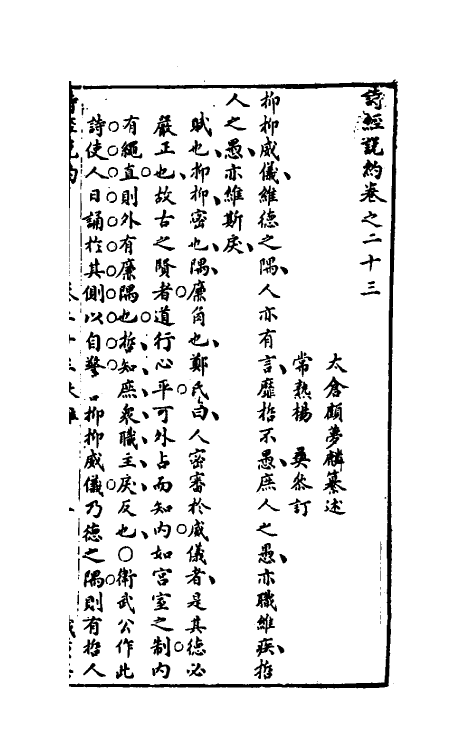 詩經說約卷之二十三
太倉顧夢麟纂述
常熟楊 彝參訂
抑抑威儀維德之隅人亦有言靡哲不愚庶人之愚亦職維疾哲
人之愚亦維斯戾
賦也抑抑密也隅廉角也鄭氏曰人密審於威儀者是其德必
嚴正也故古之賢者道行心平可外占而知內如宮室之制內
有繩直則外有廉隅也哲知庶衆職主戾反也○衛武公作此
詩使人日誦於其側以自警言抑抑威儀乃德之隅則有哲人